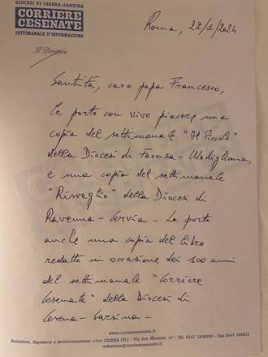 DIOCESI DI CESENA-SARSINA
CORRIERE
CESENATE
SETTIMANALE D'INFORMAZIONE
Il Direttore
Roma, 22/1/2024
Santità, caro papa Francesco,
Le porto con vivo piacere una
copia del settimanale "Il Piccolo"
della Diocesi di Faenza-Modigliana,
e una copia del settimanale
"Risveglio" della Diocesi di
Ravenna-Cervia. Le porto
anche una copia del libro
redatto in occasione dei 100 anni
del settimanale "Corriere
Cesenate" della Diocesi di
Cesena-Sarsina.
www.corrierecesenate.it
Redazione, Segreteria e Amministrazione: 47521 CESENA (FC) - Via don Minzoni, 47 - Tel. 0547
redazione@corrierecesenate.it